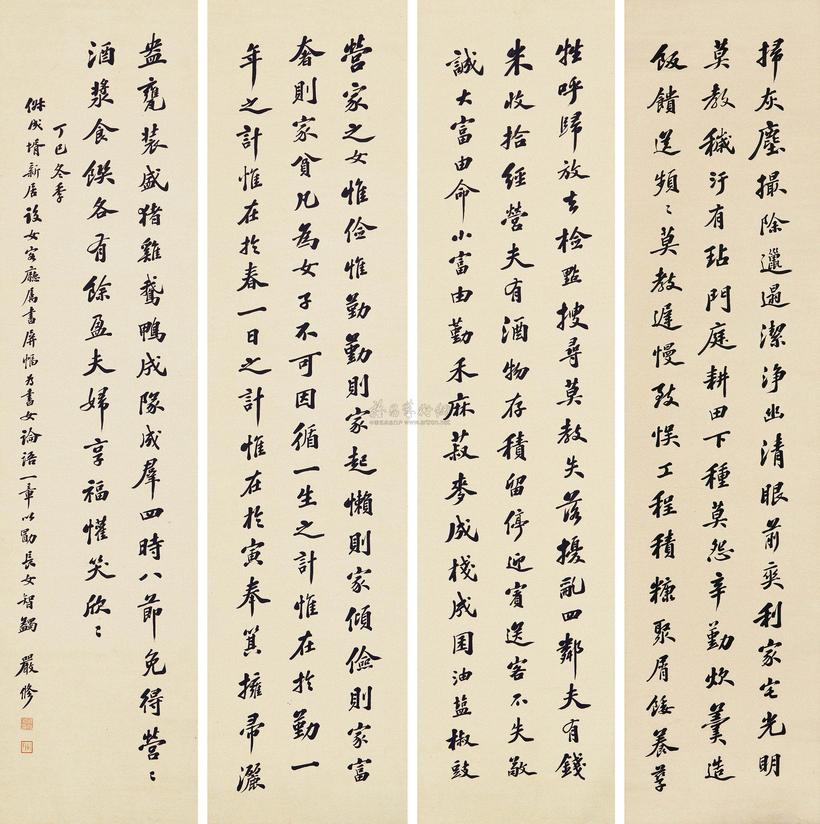 掃灰塵撮除邋遢潔淨幽清眼前爽利家宅光明
莫教穢汙有玷門庭耕田下種莫怨辛勤炊羹造
飯饋送頻〻莫教遲慢致悞工程積糠聚屑餧養孳
牲呼歸放去檢點搜尋莫教失落擾亂四鄰夫有錢
米收拾經營夫有酒物存積留停迎賓送客不失敬
誠大富由命小富由勤禾麻菽麥成棧成囷油鹽椒豉
營家之女惟儉惟勤勤則家起懶則家傾儉則家富
奢則家貧凡為女子不可因循一生之計惟在於勤一
年之計惟在於春一日之計惟在於寅奉箕擁帚灑
盎甕裝盛猪雞鵝鴨成隊成羣四時八節免得營〻
酒漿食饌各有餘盈夫婦享福懽笑欣〻
丁巳冬季
成壻新居設女客廳屬書屏幅為書女論語一章以勖長女智蠲 嚴修
www.artron.net